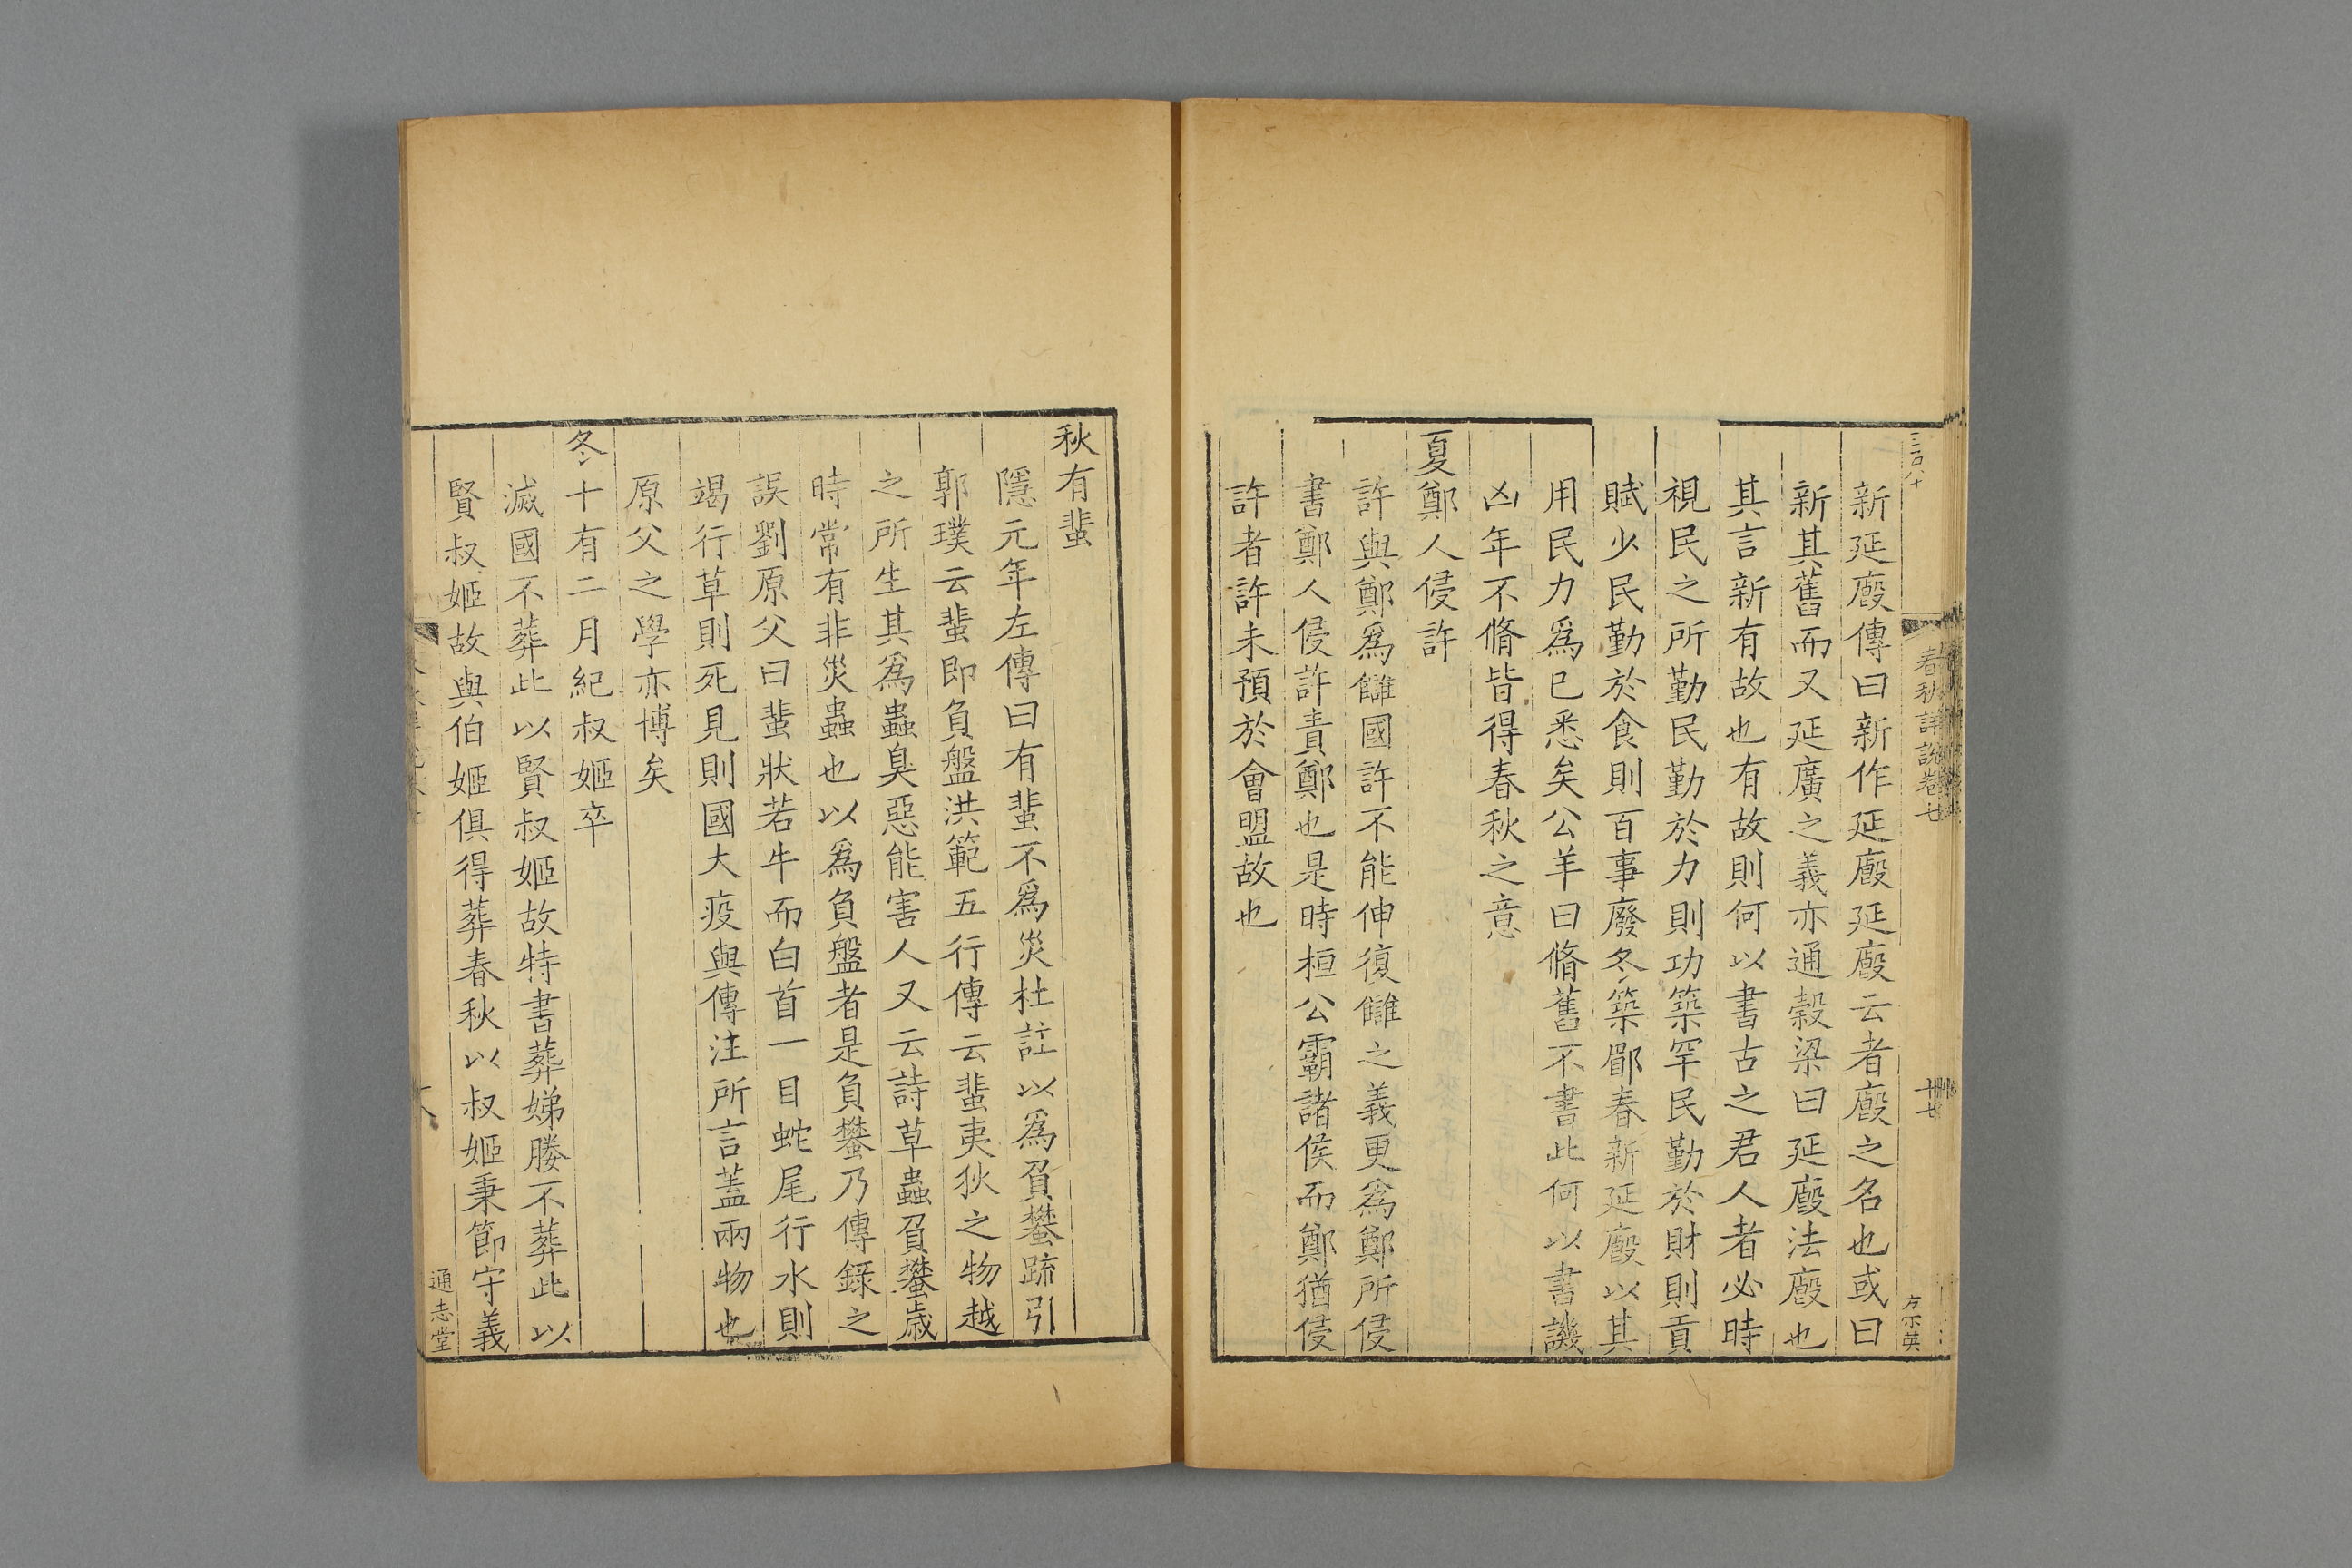 春秋詳說卷七
方示英
新延廄傳曰新作延廄延廄云者廄之名也或曰
新其舊而又延廣之義亦通穀梁曰延廄法廄也
其言新有故也有故則何以書古之君人者必時
視民之所勤民勤於力則功築罕民勤於財則貢
賦少民勤於食則百事廢冬築郿春新延廄以其
用民力為已悉矣公羊曰脩舊不書此何以書譏
凶年不脩皆得春秋之意
夏鄭人侵許
許與鄭為讎國許不能伸復讎之義更為鄭所侵
書鄭人侵許責鄭也是時桓公霸諸侯而鄭猶侵
許者許未預於會盟故也
秋有蜚
隱元年左傳曰有蜚不為災杜註以為負蠜疏引
郭璞云蜚即負盤洪範五行傳云蜚夷狄之物越
之所生其為蟲臭惡能害人又云詩草蟲負蠜歲
時常有非災蟲也以為負盤者是負蠜乃傳録之
誤劉原父曰蜚狀若牛而白首一目蛇尾行水則
竭行草則死見則國大疫與傳注所言蓋兩物也
原父之學亦博矣
冬十有二月紀叔姬卒
滅國不葬此以賢叔姬故特書葬娣媵不葬此以
賢叔姬故與伯姬俱得葬春秋以叔姬秉節守義
通志堂